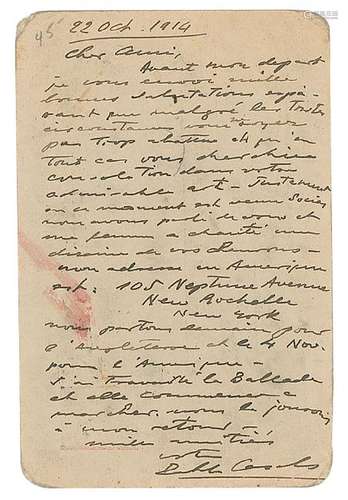 45
22 Oct. 1914
Cher Ami,
Avant mon départ
je vous envoi mille
bonnes salutations espé-
rant que malgré les tristes
circonstances vous soyez
pas trop abattu et qu'en
tout cas vous cherchiez
consolation dans votre
admirable art - Justement
en ce moment est venu
nous avons parlé de vous et
ma femme a chanté une
dizaine de vos
mon adresse en Amerique
est: 105 Neptune Avenue
New Rochelle
New York
nous partons demain pour
l'Angleterre et le 4 Nov.
pour l'Amerique -
J'ai travaillé la Ballade
et elle commence a
marcher. nous la jouerons
a mon retour -
mille amitiés
votre
Pablo Casals